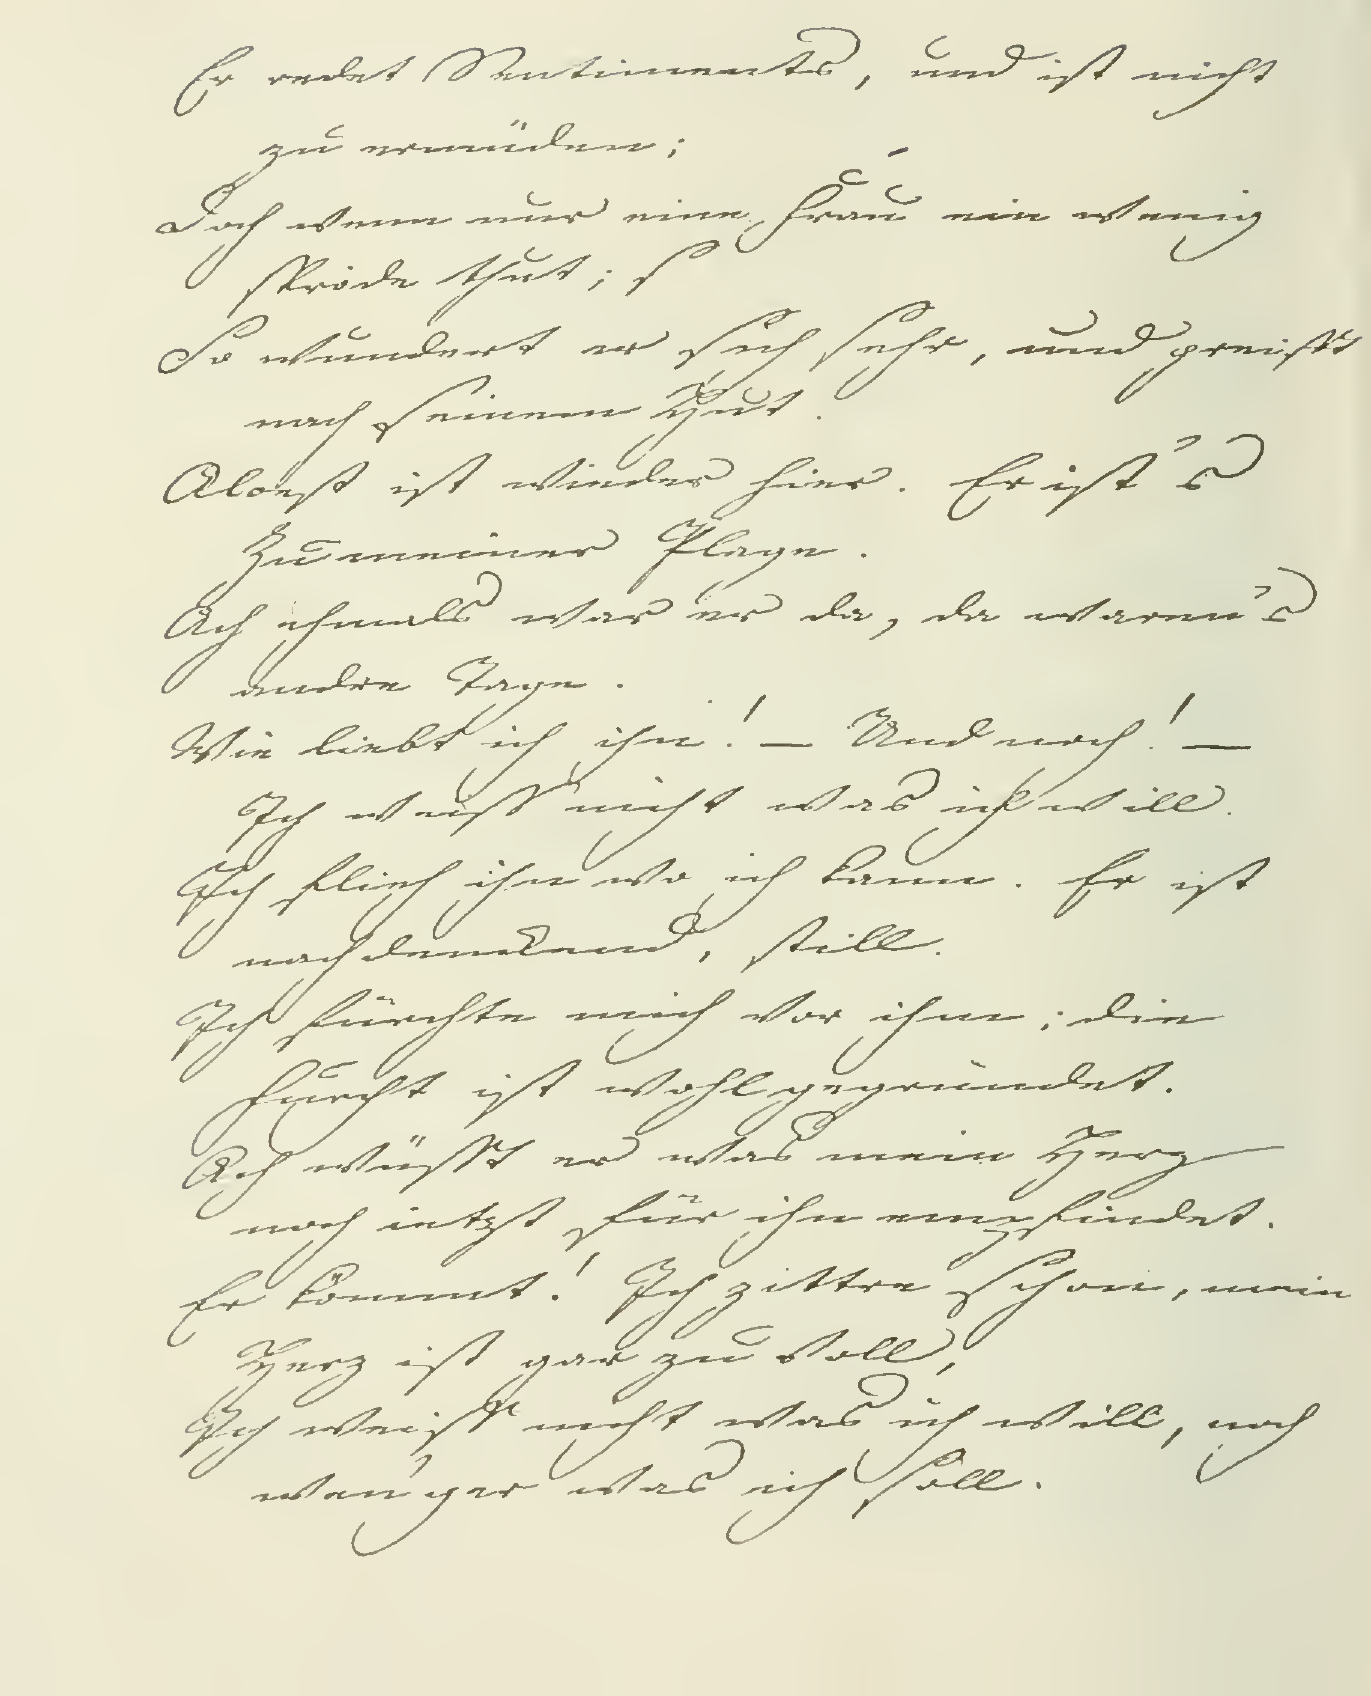 Er redet Sentiments, und ist nicht
zu ermüden;
Doch wenn nur eine Frau ein wenig
spröde thut; s
So wundert er sich sehr, und greifft
nach seinem Hut.
Alcest ist wieder hier. Er ist's
zu meiner Plage.
Ach ehmals war er da, da waren's
andre Tage.
Wie liebt ich ihn! — Und noch! —
Ich weiss nicht was ich will.
Ich flieh ihn wo ich kann. Er ist
nachdenckend, still.
Ich fürchte mich vor ihm; die
Furcht ist wohl gegründet.
Ach wüsst er was mein Herz
noch ietzt für ihn empfindet.
Er kömmt! Ich zittre schon, mein
Herz ist gar zu voll,
Ich weiss nicht was ich will, noch
wen'ger was ich soll.